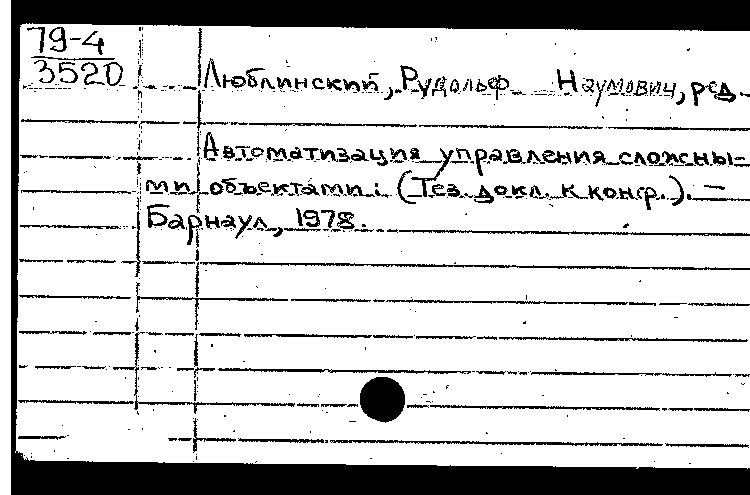 79-4
3520
Люблинский, Рудольф Наумович, ред.
Автоматизация управления сложны-
ми объектами: (Тез. докл. к конф.). —
Барнаул, 1978.